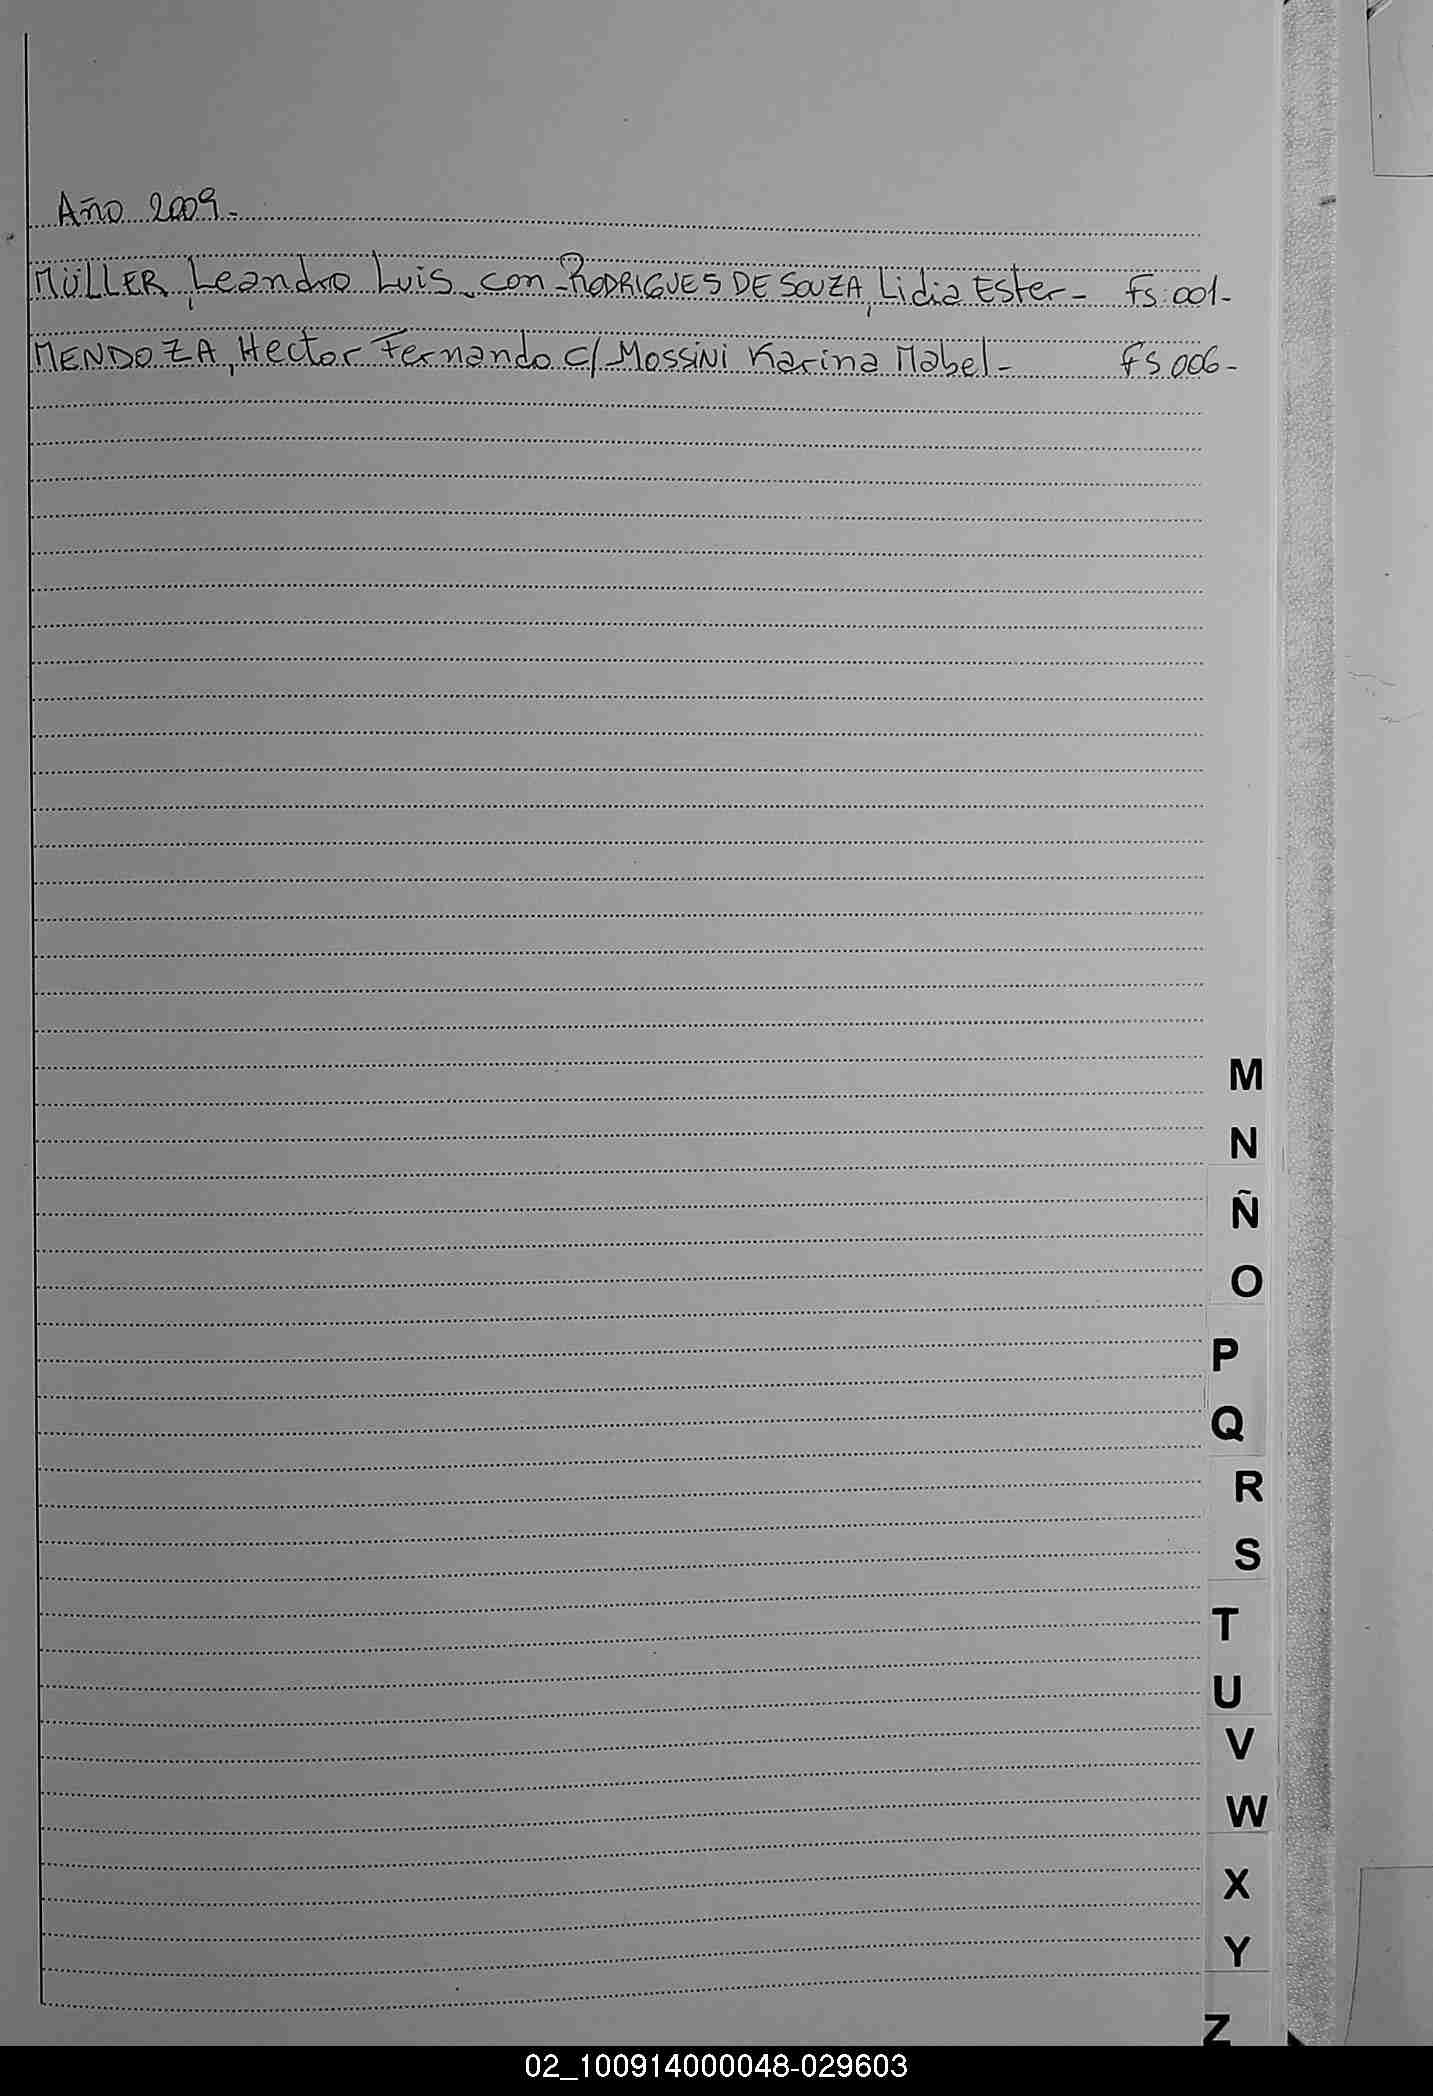 Año 2009.-
MÜLLER, Leandro Luis, con-RODRIGUES DE SOUZA, Lidia Ester- Fs:001-
MENDOZA, Hector Fernando c/ Mossini Karina Mabel- Fs 006-
M
N
Ñ
O
P
Q
R
S
T
U
V
W
X
Y
Z
02_100914000048-029603